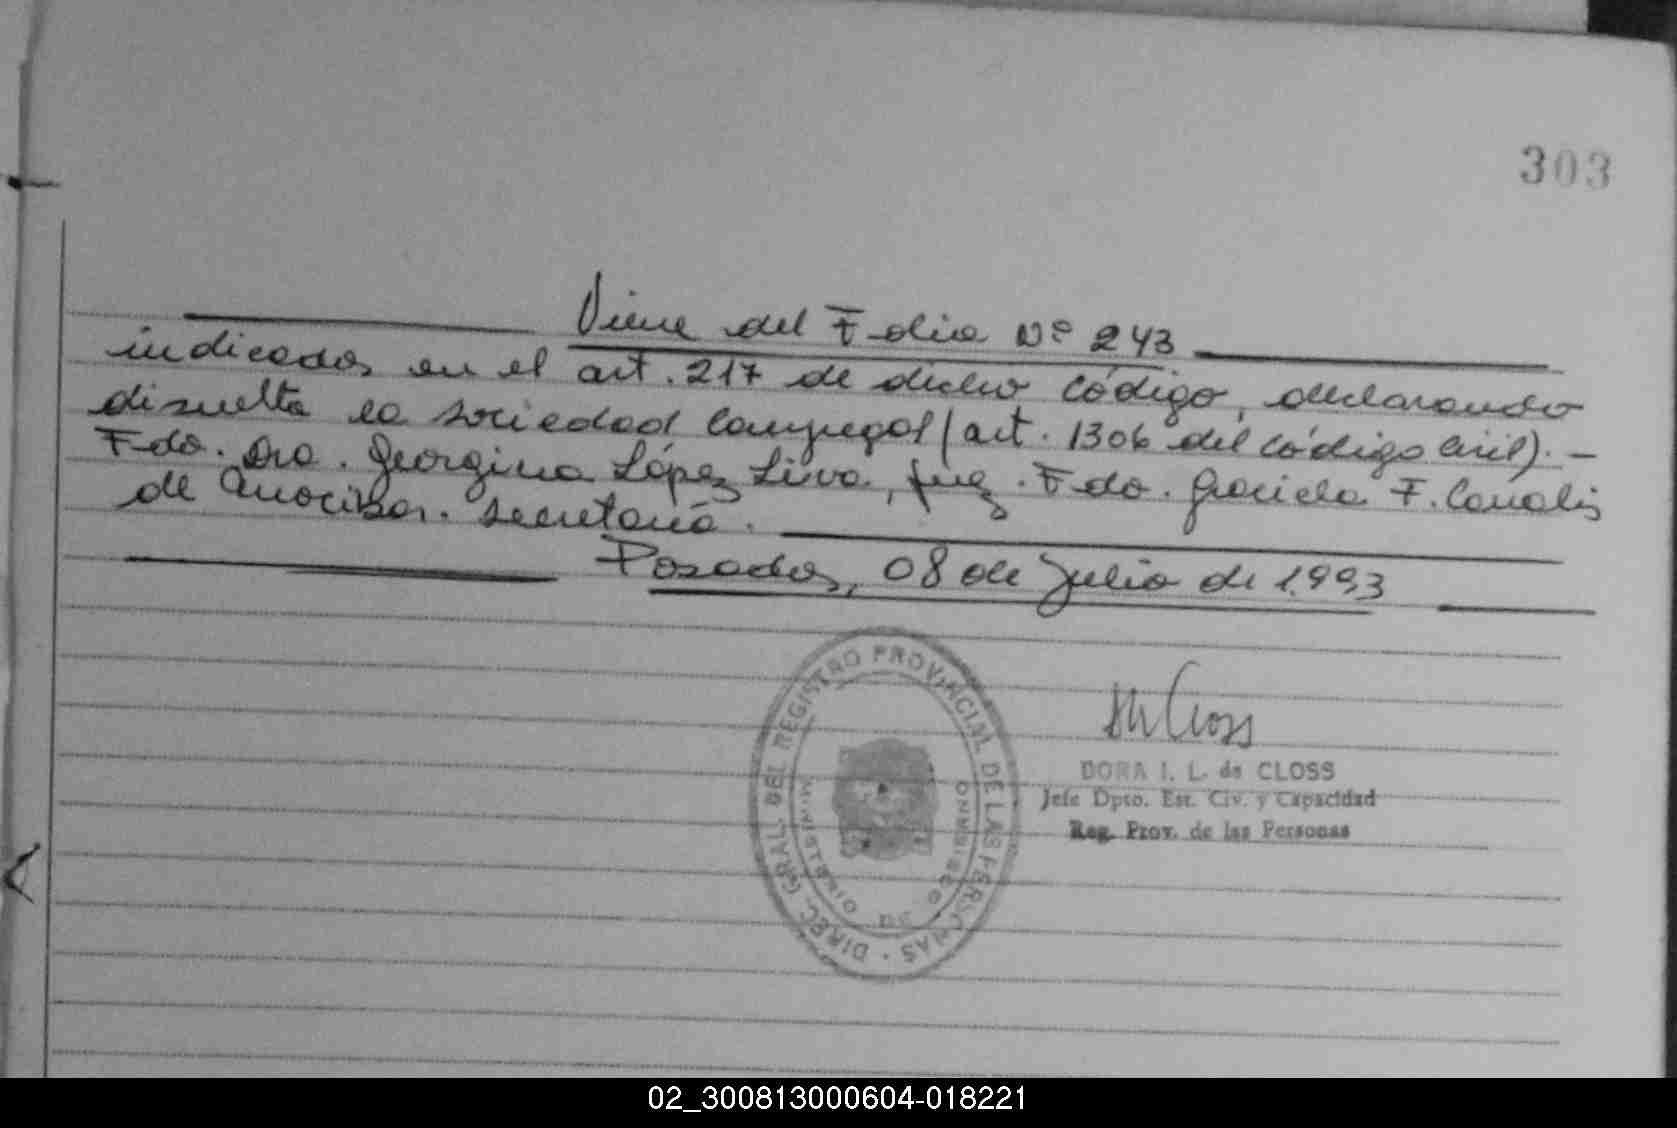 303
Viene del Folio Nº 243
indicados en el art. 217 de dicho Código, declarando
disuelta la sociedad conyugal (art. 1306 del Código Civil). -
Fdo. Dra. Georgina López Liva, Juez. Fdo. Graciela F. Canalis
de Amocibar. Secretaria.
Posadas, 08 de Julio de 1.993
DIREC. GRAL. DEL REGISTRO PROVINCIAL DE LAS PERSONAS
MINISTERIO DE GOBIERNO
Closs
DORA I. L. de CLOSS
Jefe Dpto. Est. Civ. y Capacidad
Reg. Prov. de las Personas
02_300813000604-018221